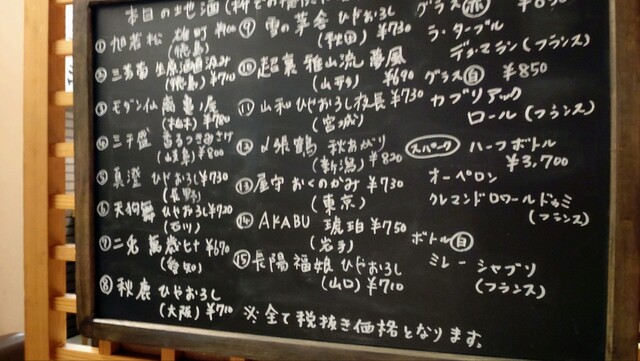 本日の地酒
① 旭若松 雄町
(徳島)
② 三芳菊 生原酒
(徳島) ¥710
③ モダン仙禽 亀ノ尾
(栃木) ¥780
④ 三千盛
(岐阜) ¥800
⑤ 真澄 ひやおろし ¥730
(長野)
⑥ 天狗舞 ひやおろし ¥720
(石川)
⑦ 二兎 萬歳七十 ¥670
(愛知)
⑧ 秋鹿 ひやおろし
(大阪) ¥710
⑨ 雪の茅舎 ひやおろし
(秋田) ¥730
⑩ 超裏 雅山流 楓
(山形) ¥690
⑪ 山和 ひやおろし ¥730
(宮城)
⑫ 〆張鶴 秋あがり
(新潟) ¥820
⑬ 屋守 おくのかみ ¥730
(東京)
⑭ AKABU 琥珀 ¥750
(岩手)
⑮ 長陽福娘 ひやおろし
(山口) ¥710
※全て税抜き価格となります。
グラス 赤 ¥850
ラ・ターブル
デ・マラン (フランス)
グラス 白 ¥850
カプリアック
ロール (フランス)
スパーク ハーフボトル
¥3,700
オーペロン
クレマンドロワール ドゥミ
(フランス)
ボトル 白
ミレー シャブリ
(フランス)